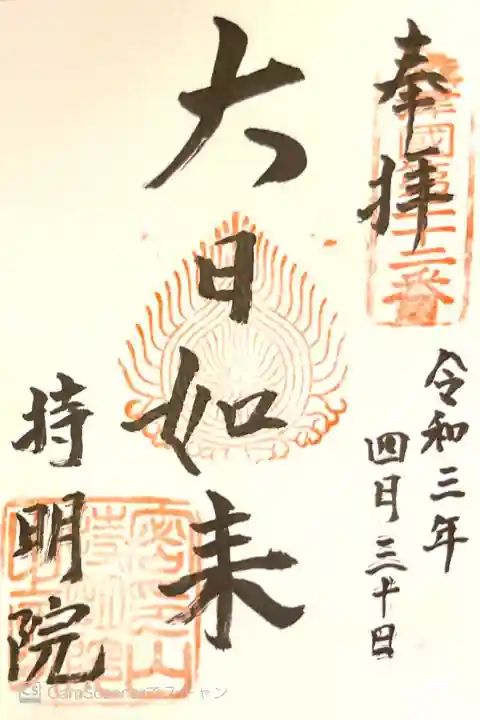 奉拝
令和三年
四月三十日
大日如来
持明院
CS CamScannerでスキャン